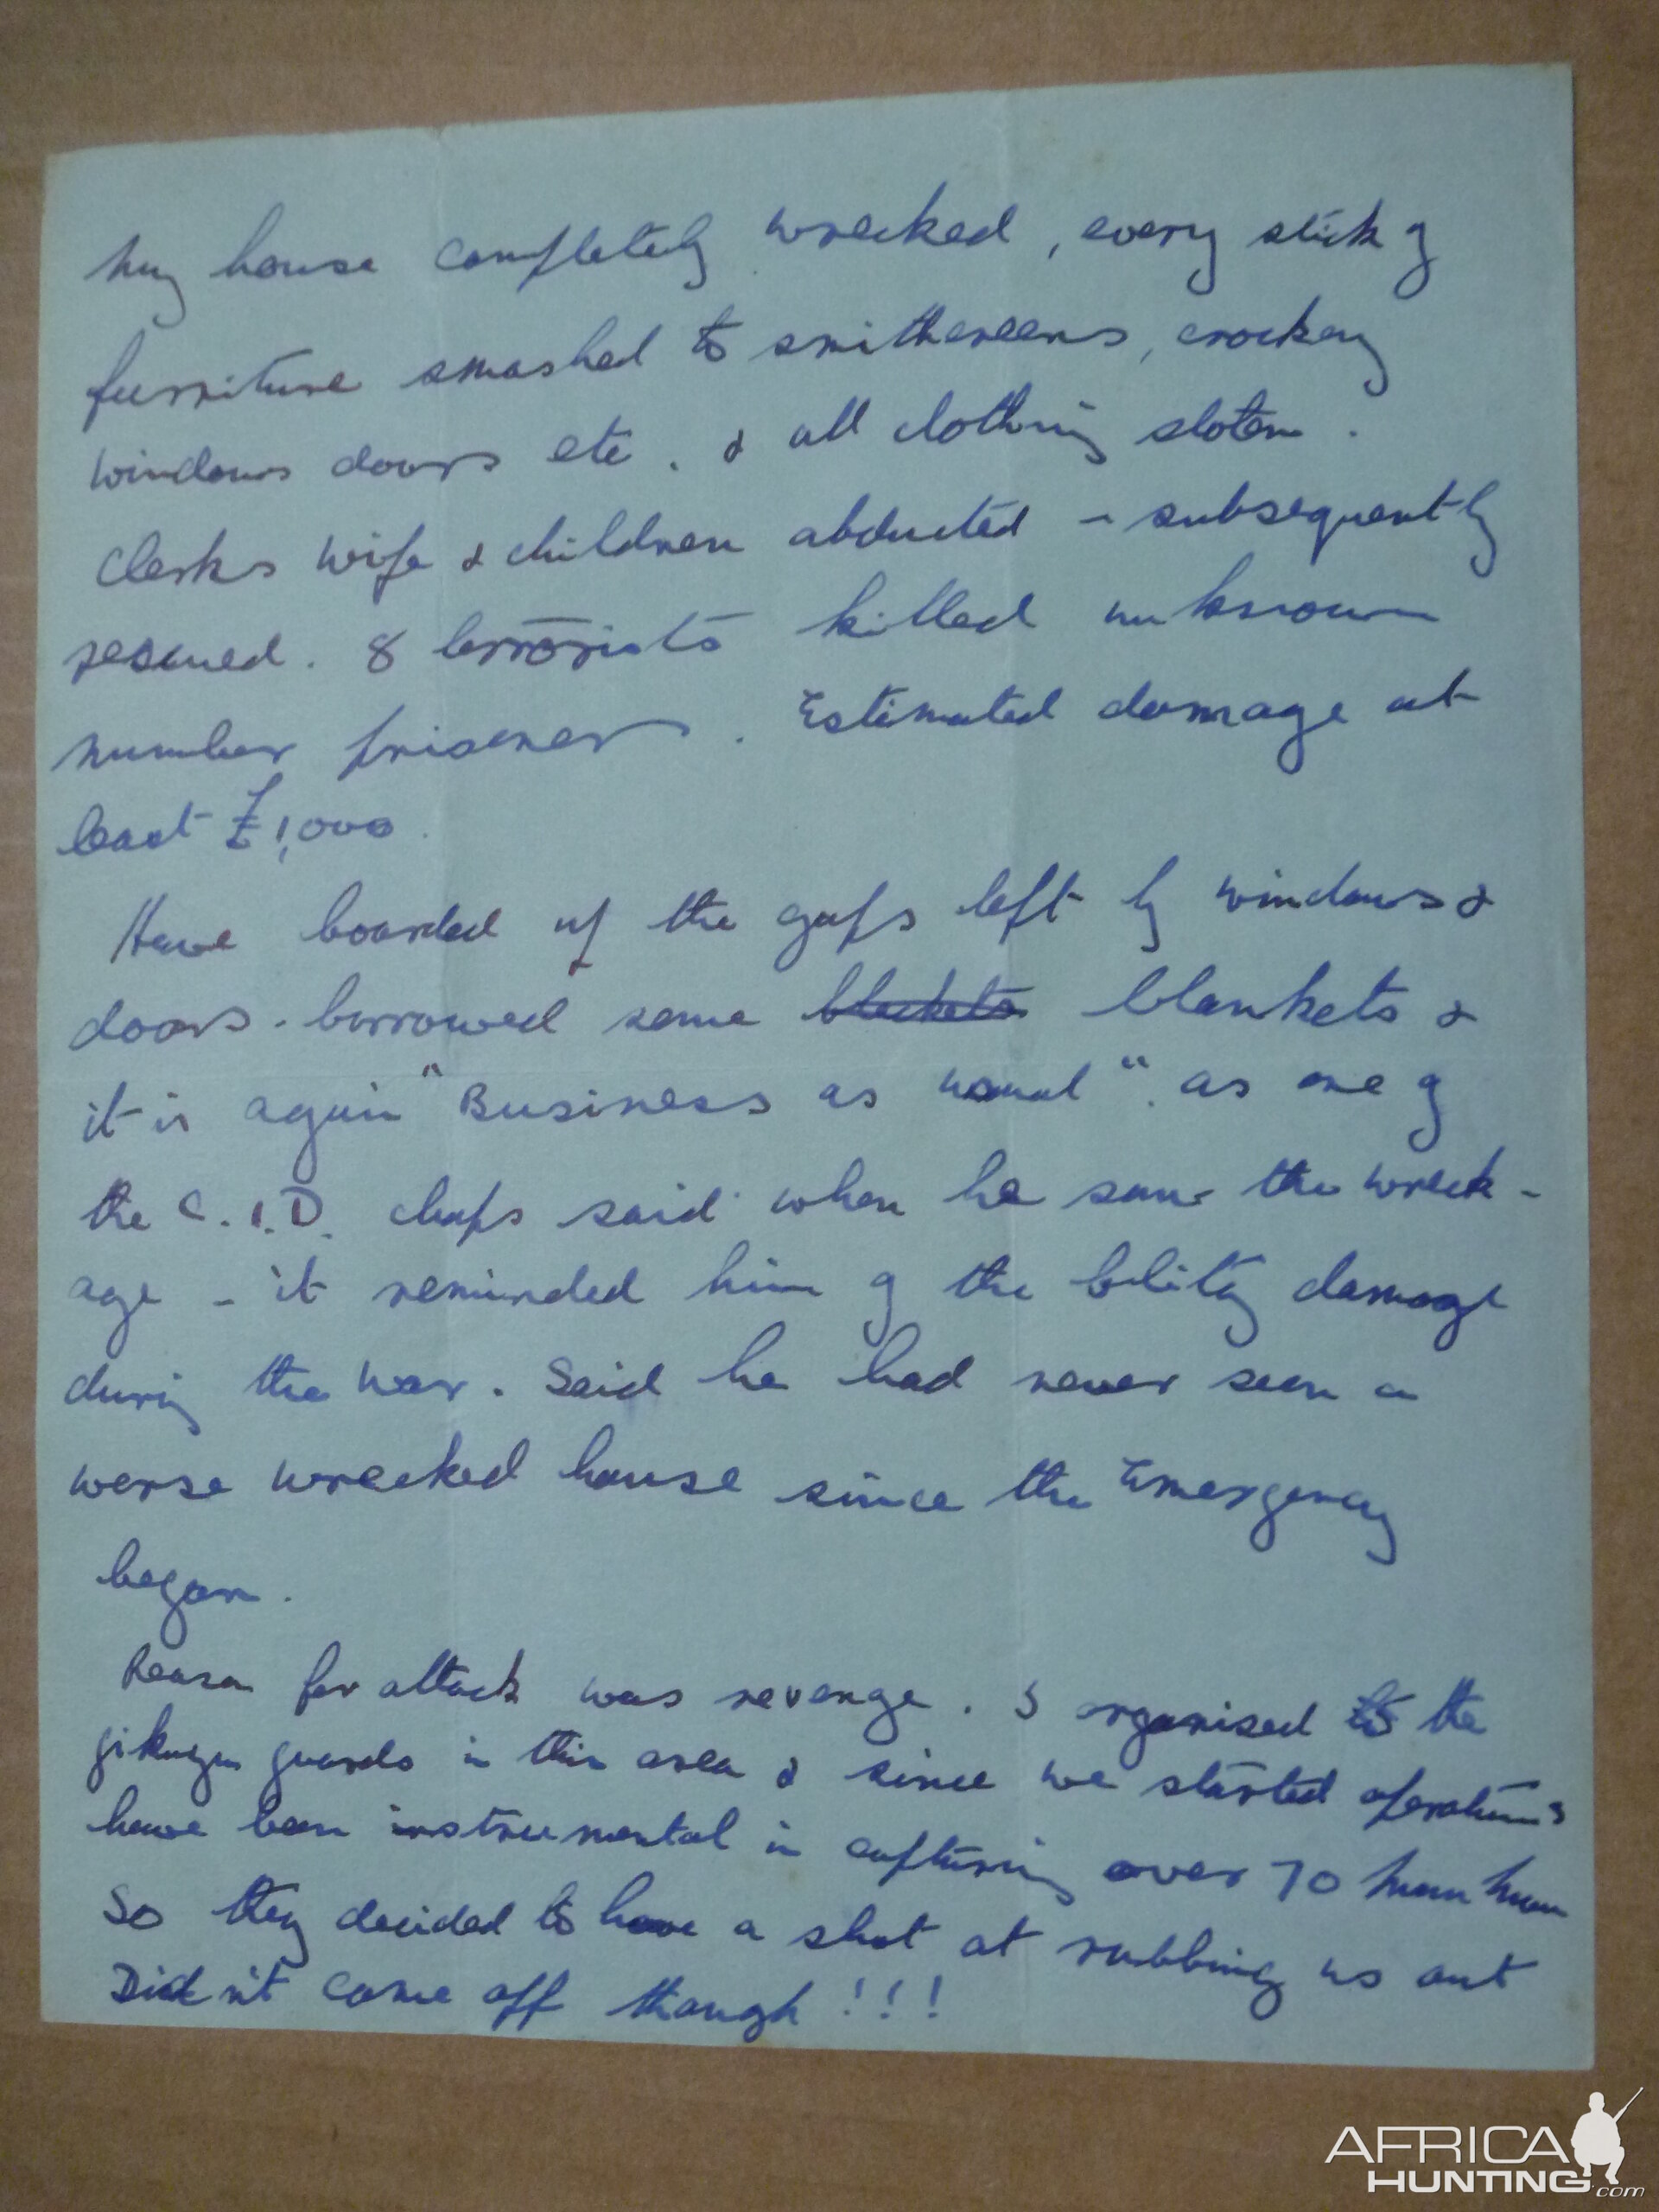 My house completely wrecked, every stick of
furniture smashed to smithereens, crockery
windows doors etc. & all clothing stolen.
Clerks wife & children abducted - subsequently
rescued. 8 terrorists killed unknown
number prisoners. Estimated damage at
least £1,000.
Have boarded up the gaps left by windows &
doors - borrowed some blankets &
it is again "Business as usual". as one of
the C.I.D. chaps said when he saw the wreck-
age - it reminded him of the blitz damage
during the war. Said he had never seen a
worse wrecked house since the Emergency
began.
Reason for attack was revenge. I organised the
Gikuyu guards in this area & since we started operations
have been instrumental in capturing over 70 mau mau
So they decided to have a shot at rubbing us out
Didn't come off though!!!
AFRICA
HUNTING.com